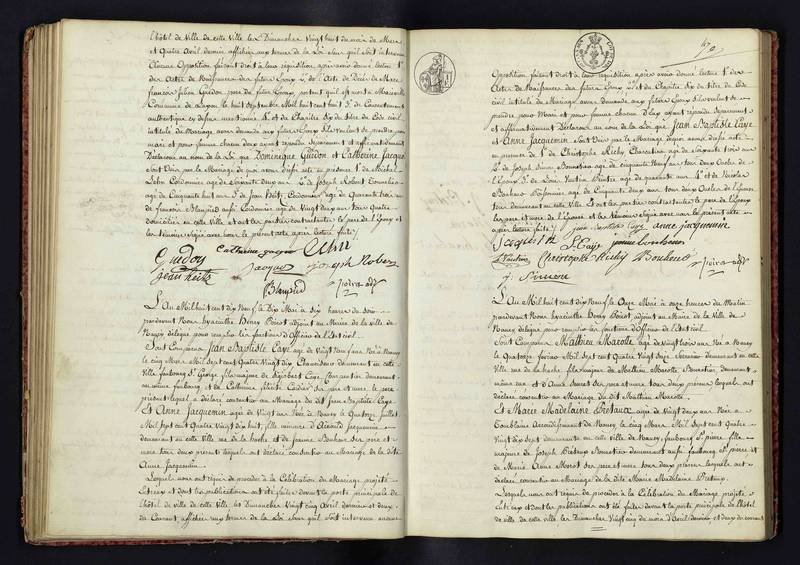 l'hôtel de Ville de cette Ville les Dimanches Vingt huit du mois de Mars
et Quatre Avril dernier affichées aux termes de la Loi sans qu'il soit intervenu
Aucune Opposition faisant droit à leur réquisition, après avoir donné lecture 1° des
Actes de Naissances des futurs Epoux, 2° de l'acte de Décès de Marie
françois Julien Guedon père du futur Epoux, portant qu'il est mort à
Commune de Layon le huit Septembre Mil huit cent huit, 3° du Consentement
authentique ci dessus mentionné, 4° et du Chapitre Six du titre du Code civil
intitulé du Mariage avons demandé aux futurs Epoux s'ils veulent se prendre pour
mari et pour femme chacun d'eux ayant répondu séparément et affirmativement
Déclarons au nom de la Loi que Dominique Guedon et Catherine Jacquot
sont Unis par le Mariage de quoi avons dressé acte en présence 1° de Michel
Lehn Cordonnier âgé de Soixante deux ans 2° de Joseph Robert Tonnelier
âgé de Cinquante huit ans 3° de Jean Heitz Cordonnier âgé de Quarante trois ans
de françois Blampied aussi Cordonnier âgé de Vingt deux ans tous Quatre
domiciliés en cette Ville, et ont les parties contractantes le père de l'Epouse et
les témoins Signé avec nous le présent acte après lecture faite
Guedon Catherine Jacquot Lehn
Jean heitz Jacquot joseph Rober
Blampied Poirot adj
L'An Mil huit cent Dix Neuf, le Dix Mai à Six heures du Soir
pardevant Nous hyacinthe Henry Poirot adjoint au Maire de la ville de
Nancy délégué pour remplir les fonctions d'Officier de l'Etat civil
Sont Comparus Jean Baptiste Caye âgé de Vingt Neuf ans Né à Nancy
le cinq Mars Mil Sept cent Quatre Vingt dix Chamoiseur demeurant en cette
Ville faubourg St George fils majeur de Sigisbert Caye Charpentier demeurant
au même faubourg et de Catherine félicité ses père et mère, le père
présent lequel a déclaré consentir au Mariage du dit Jean Baptiste Caye
Et Anne Jacquemin âgée de Vingt ans Née à Nancy le Quatorze Juillet
Mil Sept cent Quatre Vingt dix huit, fille mineure d'Arnould Jacquemin
demeurant en cette Ville rue de la hache et de Jeanne Bonheur ses père et
mère tous deux présents lesquels ont déclaré consentir au Mariage de la dite
Anne Jacquemin
Lesquels nous ont requis de procéder à la Célébration du Mariage projeté
entr'eux et dont les publications ont été faites devant la porte principale de
l'hôtel de ville de cette Ville les Dimanches Vingt cinq Avril dernier et deux
du Courant affichées aux termes de la Loi sans qu'il soit intervenu aucune
70
Opposition, faisant droit à leur réquisition après avoir donné lecture 1° des
Actes de Naissances des futurs Epoux, 2° du Chapitre Six du titre du Code
civil intitulé du Mariage avons demandé aux futurs Epoux s'ils veulent se
prendre pour Mari et pour femme chacun d'eux ayant répondu séparément
et affirmativement Déclarons au nom de la Loi que Jean Baptiste Caye
et Anne Jacquemin sont Unis par le Mariage de quoi avons dressé acte
en présence de 1° de Christophe Richy Charpentier âgé de Soixante trois ans
2° de Joseph Simon Bonnetier âgé de cinquante Neuf ans tous deux Oncles de
l'Epoux 3° de Louis Vautrin Peintre âgé de quarante ans 4° et de Nicolas
Bonheur Cordonnier âgé de Cinquante deux ans tous deux Oncles de l'Epouse
tous demeurant en cette Ville Et ont les parties contractantes le père de l'Epoux
les père et mère de l'Epouse et les témoins Signé avec nous le présent acte
après lecture faite jean baptiste Caye anne jacquemin
Jacquemin S. Caye jeanne bonheur
L Vautrin Christophe Richy N Bonheur Poirot adj
J. Simon
L'An Mil huit cent Dix Neuf, le Onze Mai à onze heures du Matin
pardevant Nous hyacinthe Henry Poirot adjoint au Maire de la Ville de
Nancy délégué pour remplir les fonctions d'Officier de l'Etat civil
Sont Comparus Mathieu Marotte âgé de Vingt trois ans Né à Nancy
le Quatorze Mil Sept cent Quatre Vingt Seize demeurant en cette
Ville rue de la hache fils majeur de Mathieu Marotte Bonnetier demeurant
même rue et d'Anne ses père et mère tous deux présens lesquels ont
déclaré consentir au Mariage du dit Mathieu Marotte
Et Marie Madelaine Bretaux âgée de Vingt deux ans Née à
Goublaine Arrondissement de Nancy le cinq Mars Mil Sept cent Quatre
Vingt dix sept demeurante en cette ville de Nancy faubourg St pierre fille
majeure de Joseph Bretaux Bonnetier demeurant aussi faubourg St pierre et
de Marie Anne Morot ses père et mère tous deux présens lesquels ont
déclaré consentir au Mariage de la dite Marie Madelaine Bretaux
Lesquels nous ont requis de procéder à la Célébration du Mariage projeté
entr'eux et dont les publications ont été faites devant la porte principale de l'hôtel
de ville de cette ville, les Dimanches Vingt cinq du mois d'Avril dernier et deux du courant